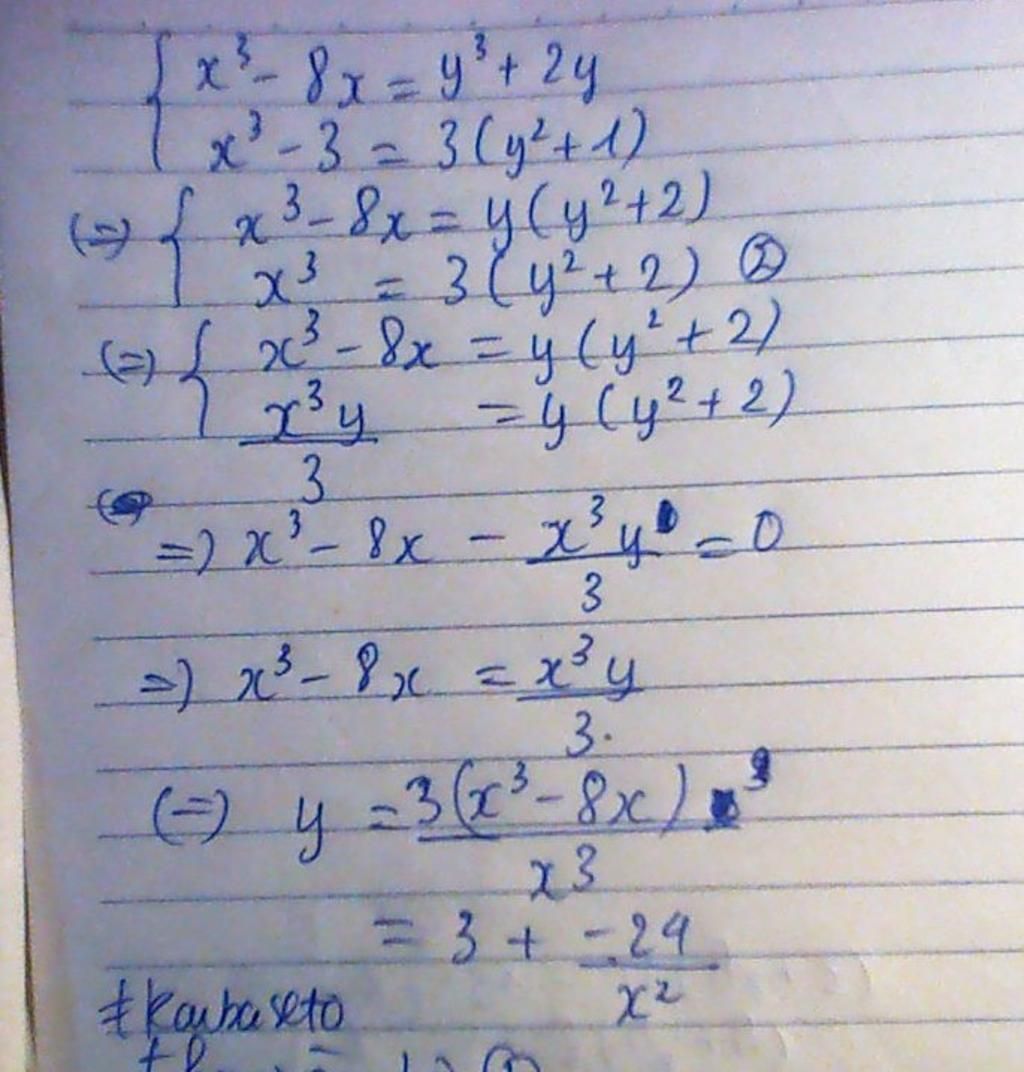 { x³ - 8x = y³ + 2y
x³ - 3 = 3(y² + 1)
(=) { x³ - 8x = y(y² + 2)
x³ = 3(y² + 2) ②
(=) { x³ - 8x = y(y² + 2)
x³y/3 = y(y² + 2)
=) x³ - 8x - x³y/3 = 0
=) x³ - 8x = x³y/3.
(=) y = 3(x³ - 8x)/x3
= 3 + -24/x²